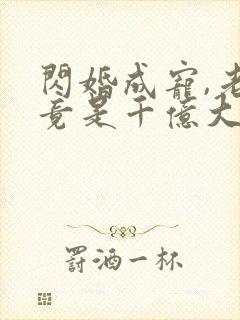 閃婚成寵,老
竟是千億大
罰酒一杯